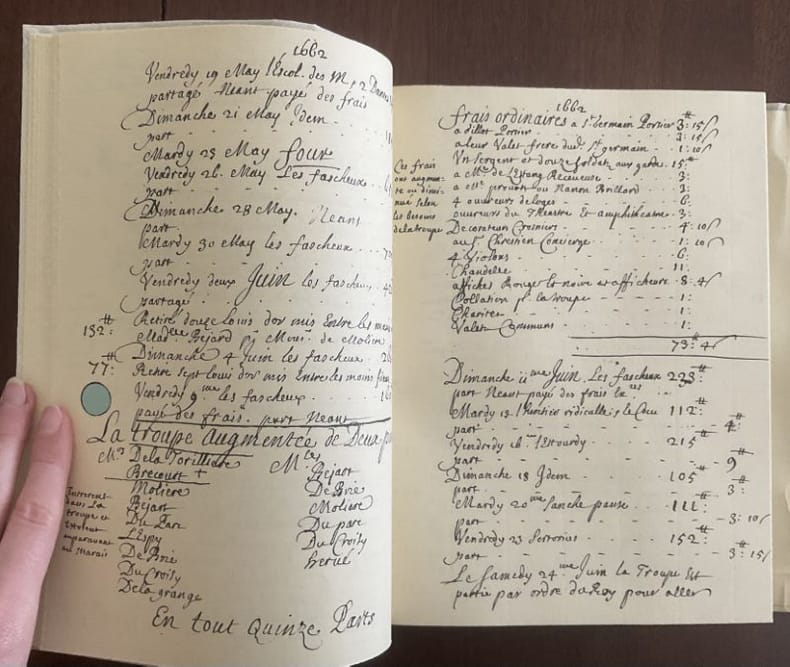 1662
Vendredy 19 May l'Escol. des M, 2
partagé Neant payé des frais
Dimanche 21 May Idem
part
Mardy 23 May four
Vendredy 26. May Les fascheux
part
Dimanche 28 May. Neant
part
Mardy 30 May les fascheux
part
Vendredy deux Juin les fascheux
partagé
132: # Retiré douze louis dor mis Entre les
Bejard pr de Moliere
Dimanche 4 Juin les fascheux
77: # Retiré sept louis dor mis Entre les
Vendredy 9 me les fascheux
payé des frais. part Neant
La troupe augmentée de Deux
Mrs
De la Torilliere
Brecourt +
Moliere
Bejart
Du Parc
L'Espy
De Brie
Du Croisy
De la grange
Mles
Bejart
De Brie
Moliere
Du parc
Du Croisy
herué
dans La
troupe et
Estoient
auparavant
au Marais
En tout Quinze Parts
1662
frais ordinaires a St Germain Portier 3# : 15
a Gillot Portier 3 : 15
a leur Valet frere dud. St germain 1 : 10
Un sergent et douze soldats aux gardes. 15#
a Mlle de L'Estang Receveuse 3:
a Mlle ou Nanon Brillard 3:
4 ouvreurs de loges 6:
ouvreurs du Theatre & amphiteatre 3:
Decorateur Crosniers 4 : 10
au Sr Chrestien Concierge 1 : 10
4 Violons 6:
Chandelle 11:
affiches Rouge et noire et afficheurs 8 : 4
Collation pr la troupe 1:
Charité 1:
Valets Communs 1:
73# : 4
Ces frais
ou
nue selon
les besoins
de la troupe
Dimanche 11 me Juin. Les fascheux 223#
part Neant payé des frais
Mardy 13. ridiculle, le Cocu 112#
part 4#:
Vendredy 16. l'Estourdy 215#
part 9#
Dimanche 18 Idem 105#
part 3#:
Mardy 20 me Sanche panse 111#
part 3: 10
Vendredy 23 Sertorius 152#
part 3#: 15
Le Samedy 24 me Juin la Troupe Est
partie par ordre du Roy pour aller